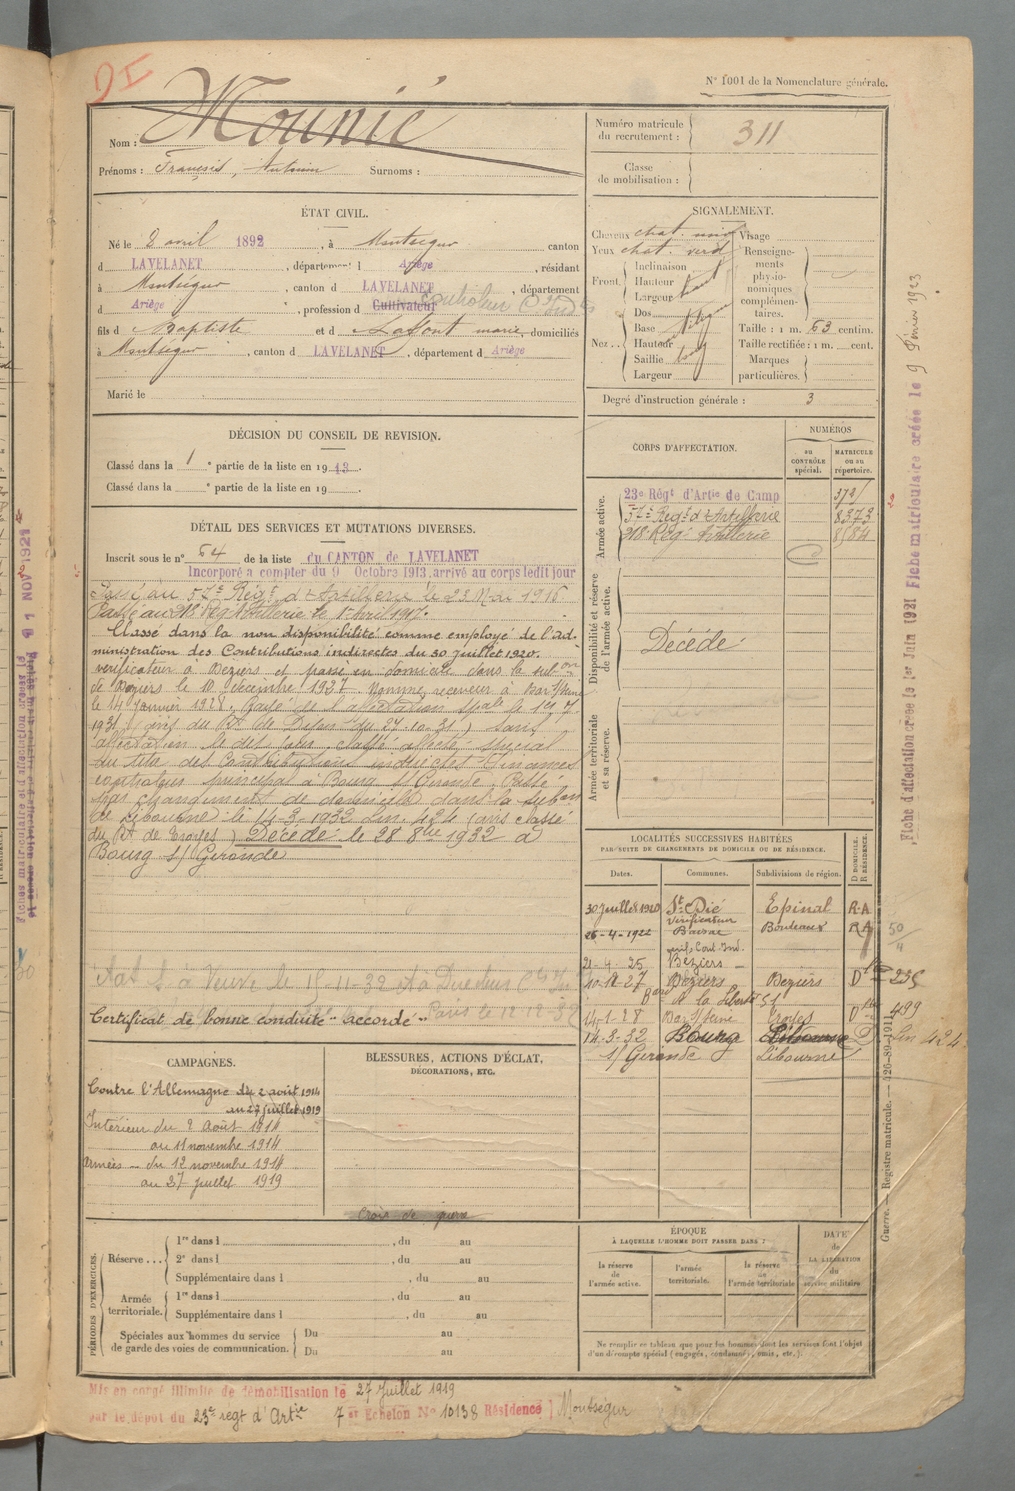 N° 1001 de la Nomenclature générale.
Nom : Mounié
Prénoms : François, Antonin Surnoms :
Numéro matricule du recrutement : 311
Classe de mobilisation :
ÉTAT CIVIL.
Né le 8 avril 1892, à Montségur canton
d LAVELANET, département d Ariège, résidant
à Montségur, canton d LAVELANET, département
d Ariège, profession d Cultivateur
fils d Baptiste et d Lafont marie, domiciliés
à Montségur, canton d LAVELANET, département d Ariège
Marié le
SIGNALEMENT.
Cheveux chat. Visage
Yeux chat. verd Renseignements physionomiques complémentaires.
Front. Inclinaison
Hauteur haut
Largeur
Nez .. Dos
Base
Hauteur
Saillie long
Largeur
Taille : 1 m. 63 centim.
Taille rectifiée : 1 m. cent.
Marques particulières.
Degré d'instruction générale : 3
DÉCISION DU CONSEIL DE REVISION.
Classé dans la 1e partie de la liste en 1913.
Classé dans la e partie de la liste en 19
CORPS D'AFFECTATION.
NUMÉROS
au CONTRÔLE spécial.
MATRICULE ou au répertoire.
Armée active.
23e Régt d'Artie de Camp
57e Régt d'Artillerie 8373
218 Régt Artillerie 8584
Disponibilité et réserve de l'armée active.
Décédé
Armée territoriale et sa réserve.
DÉTAIL DES SERVICES ET MUTATIONS DIVERSES.
Inscrit sous le n° 64 de la liste du CANTON de LAVELANET
Incorporé à compter du 9 Octobre 1913, arrivé au corps ledit jour
Passé au 57e Régt d'Artillerie le 23 Mai 1916
Passé au 218 Reg Artillerie le 1 Avril 1917.
Classé dans la non disponibilité comme employé de l'ad-
ministration des Contributions indirectes du 30 juillet 1920.
verificateur à Beziers et passé en domicile dans la subon
de Beziers le 10 decembre 1927. Nommé receveur à Bar S/Seine
le 14 janvier 1928. Rayé de l'affectation spale le 1er
1931 (avis du Bt de 27-10-31) Sans
affectation le dit jour, classé affecté spécial
au titre des Contributions
principal à Bourg S/Gironde. Passé
par changement de domicile dans la subon
de Libourne le 14-3-1932 Lin. 424 (avis classé
du Rt de Troyes) Décédé le 28 8bre 1932 à
Bourg S/Gironde
à Veuve le 15-11-32 et à Directeur
Paris le 12-12-32
Certificat de bonne conduite "accordé"
LOCALITÉS SUCCESSIVES HABITÉES
PAR SUITE DE CHANGEMENTS DE DOMICILE OU DE RÉSIDENCE.
Dates. Communes. Subdivisions de région. D DOMICILE. R RÉSIDENCE.
30 juillet 1920 St Dié Epinal R.A
Vérificateur
26-4-1922 Bordeaux R A
21-4-25 Béziers
10-12-27 Béziers Beziers D 235
de la Liberté 51
14-1-28 Bar S/Seine Troyes D 499
14-3-32 Bourg Libourne D Lin 424
S/Gironde Libourne
CAMPAGNES.
Contre l'Allemagne du 2 août 1914
au 27 juillet 1919
Intérieur du 2 Août 1914
au 11 novembre 1914
Armées du 12 novembre 1914
au 27 juillet 1919
BLESSURES, ACTIONS D'ÉCLAT,
DÉCORATIONS, ETC.
Croix de guerre
PÉRIODES D'EXERCICES.
Réserve ... 1re dans l , du au
2e dans l , du au
Supplémentaire dans l , du au
Armée territoriale. 1re dans l , du au
Supplémentaire dans l , du au
Spéciales aux hommes du service de garde des voies de communication. Du au
Du au
ÉPOQUE
À LAQUELLE L'HOMME DOIT PASSER DANS :
la réserve de l'armée active.
l'armée territoriale.
la réserve de l'armée territoriale
DATE de LA LIBÉRATION du service militaire.
Ne remplir ce tableau que pour les hommes dont les services font l'objet
d'un décompte spécial (engagés, condamnés, omis, etc.).
Mis en congé illimité de démobilisation le 27 Juillet 1919
par le dépôt du 23e regt d'Artie 7e Echelon N° 10138 Résidence Montségur
Fiche d'affectation créée le 1er Juin 1921 Fiche matriculaire créée le 9 Février 1923
Guerre. — Registre matricule. — 126-89-1911.